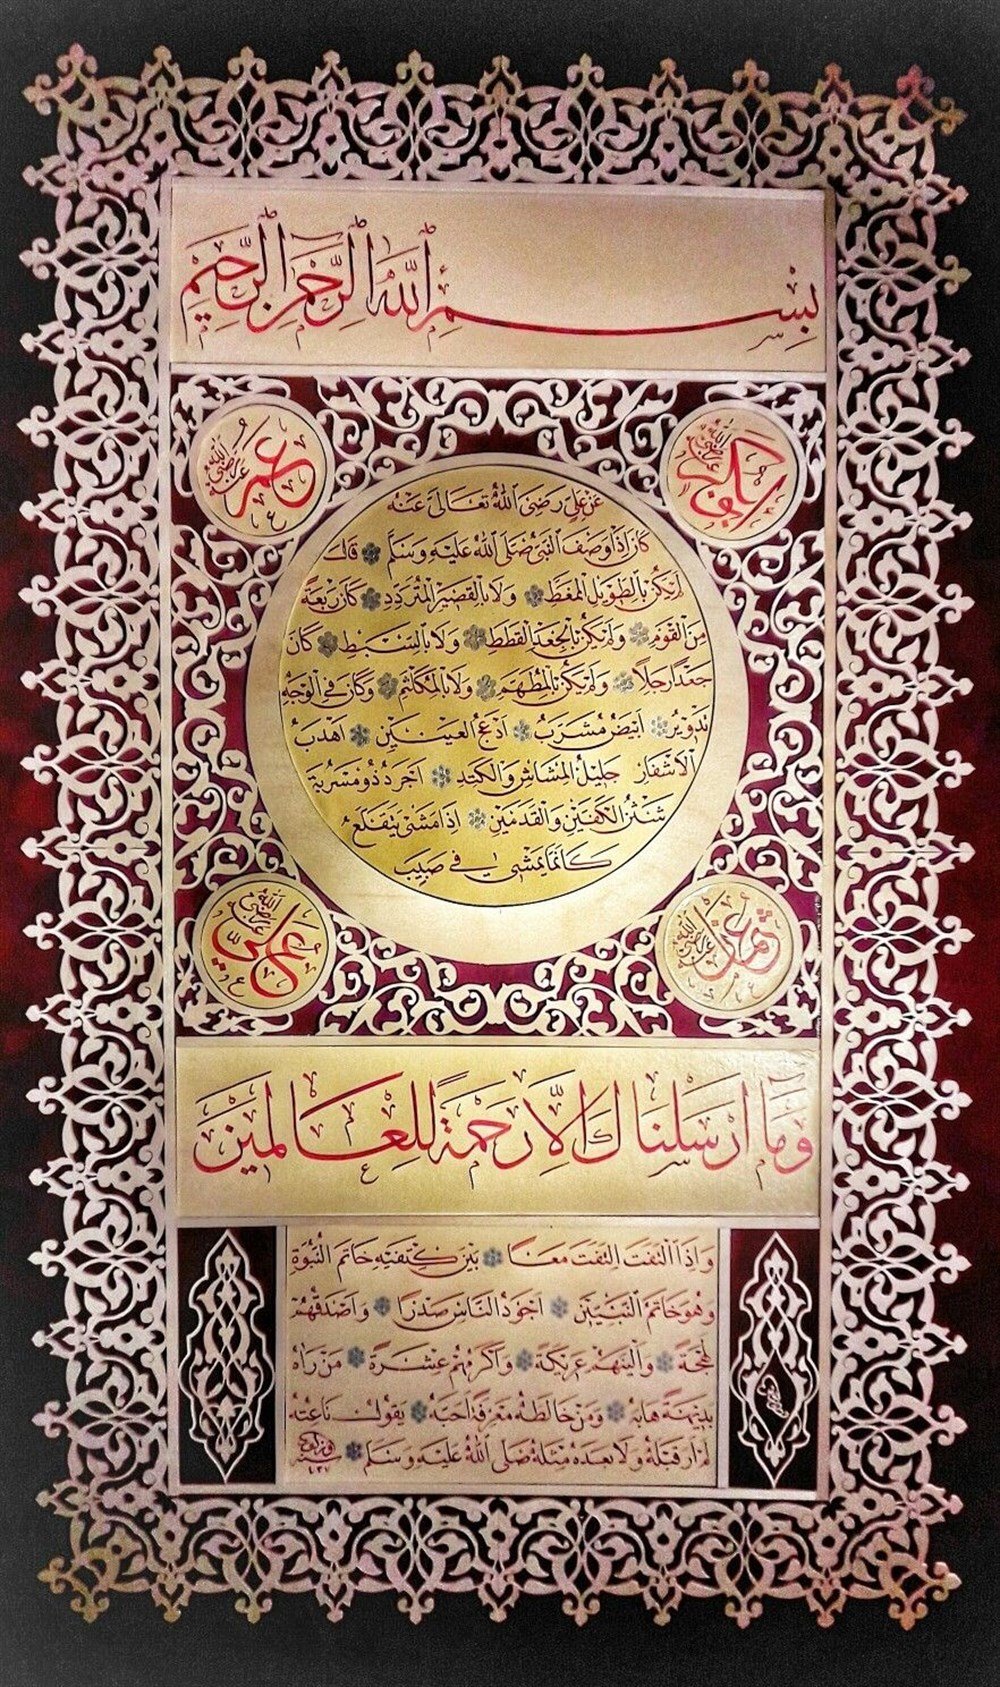 بِسْمِ اللّٰهِ الرَّحْمٰنِ الرَّحِيمِ
ابوبكر رضي الله عنه
عمر رضي الله عنه
عَنْ عَلِيٍّ رَضِيَ اللّٰهُ تَعَالَى عَنْهُ
كَانَ إِذَا وَصَفَ النَّبِيَّ صَلَّى اللّٰهُ عَلَيْهِ وَسَلَّمَ قَالَ
لَمْ يَكُنْ بِالطَّوِيلِ الْمُمَغَّطِ وَلَا بِالْقَصِيرِ الْمُتَرَدِّدِ كَانَ رَبْعَةً
مِنَ الْقَوْمِ وَلَمْ يَكُنْ بِالْجَعْدِ الْقَطَطِ وَلَا بِالسَّبِطِ كَانَ
جَعْدًا رَجِلًا وَلَمْ يَكُنْ بِالْمُطَهَّمِ وَلَا بِالْمُكَلْثَمِ وَكَانَ فِي الْوَجْهِ
تَدْوِيرٌ أَبْيَضُ مُشْرَبٌ أَدْعَجُ الْعَيْنَيْنِ أَهْدَبُ
الْأَشْفَارِ جَلِيلُ الْمُشَاشِ وَالْكَتَدِ أَجْرَدُ ذُو مَسْرُبَةٍ
شَثْنُ الْكَفَّيْنِ وَالْقَدَمَيْنِ إِذَا مَشَى يَتَقَلَّعُ
كَأَنَّمَا يَمْشِي فِي صَبَبٍ
عثمان رضي الله عنه
علي رضي الله عنه
وَمَا أَرْسَلْنَاكَ إِلَّا رَحْمَةً لِلْعَالَمِينَ
وَإِذَا الْتَفَتَ الْتَفَتَ مَعًا بَيْنَ كَتِفَيْهِ خَاتَمُ النُّبُوَّةِ
وَهُوَ خَاتَمُ النَّبِيِّينَ أَجْوَدُ النَّاسِ صَدْرًا وَأَصْدَقُهُمْ
لَهْجَةً وَأَلْيَنُهُمْ عَرِيكَةً وَأَكْرَمُهُمْ عِشْرَةً مَنْ رَآهُ
بَدِيهَةً هَابَهُ وَمَنْ خَالَطَهُ مَعْرِفَةً أَحَبَّهُ يَقُولُ نَاعِتُهُ
لَمْ أَرَ قَبْلَهُ وَلَا بَعْدَهُ مِثْلَهُ صَلَّى اللّٰهُ عَلَيْهِ وَسَلَّمَ